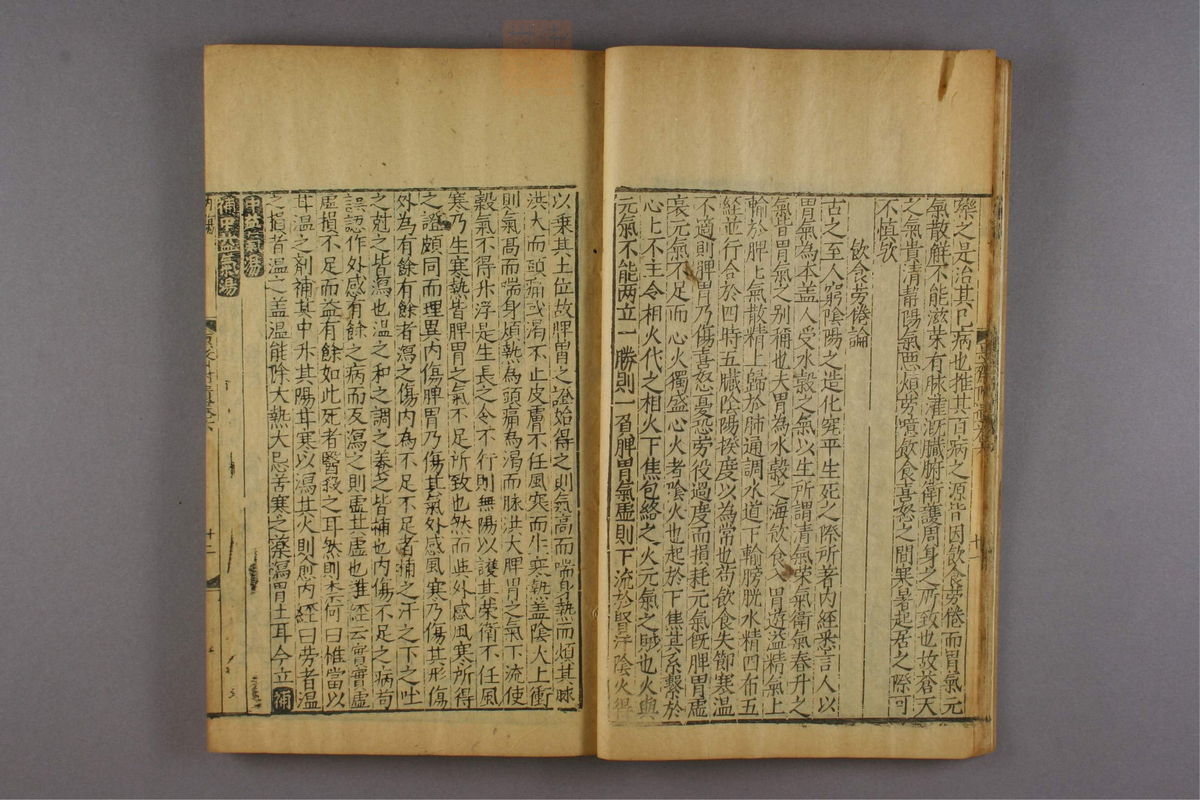 療之是治其已病也推其百病之源皆因飲食勞倦而胃氣元
氣散解不能滋榮百脉灌溉臟腑衛護周身之所致也故蒼天
之氣貴清靜陽氣惡煩勞噫飲食喜怒之間寒暑起居之際可
不慎欤
飲食勞倦論
古之至人窮陰陽之造化究乎生死之際所著内經悉言人以
胃氣為本盖人受水穀之氣以生所謂清氣榮氣衛氣春升之
氣皆胃氣之别稱也夫胃為水穀之海飲食入胃遊溢精氣上
輸於脾上氣散精上歸於肺通調水道下輸膀胱水精四布五
經並行合於四時五臟陰陽揆度以為常也苟飲食失節寒温
不適則脾胃乃傷喜怒憂恐劳役過度而損耗元氣既脾胃虚
衰元氣不足而心火獨盛心火者陰火也起於下焦其系繫於
心上不主令相火代之相火下焦包絡之火元氣之賊也火與
元氣不能两立一勝則一負脾胃氣虚則下流於腎肝陰火得
以乗其土位故脾胃之證始得之則氣高而喘身熱而煩其脉
洪大而頭痛或渴不止皮膚不任風寒而生寒熱盖陰火上衝
則氣高而喘身煩熱為頭痛為渴而脉洪大脾胃之氣下流使
穀氣不得升浮是生長之令不行則無陽以護其榮衛不任風
寒乃生寒熱皆脾胃之氣不足所致也然而此外感風寒所得
之證頗同而理異内傷脾胃乃傷其氣外感風寒乃傷其形傷
外為有餘有餘者瀉之傷内為不足不足者補之汗之下之吐
之尅之皆瀉也温之和之調之養之皆補也内傷不足之病苟
誤認作外感有餘之病而反瀉之則虚其虚也難經云實實虚
虚損不足而益有餘如此死者醫殺之耳然則柰何曰惟當以
甘温之劑補其中升其陽甘寒以瀉其火則愈内經曰劳者温
之損者温之盖温能除大熱大忌苦寒之藥瀉胃土耳今立補
中益氣湯
補中益氣湯